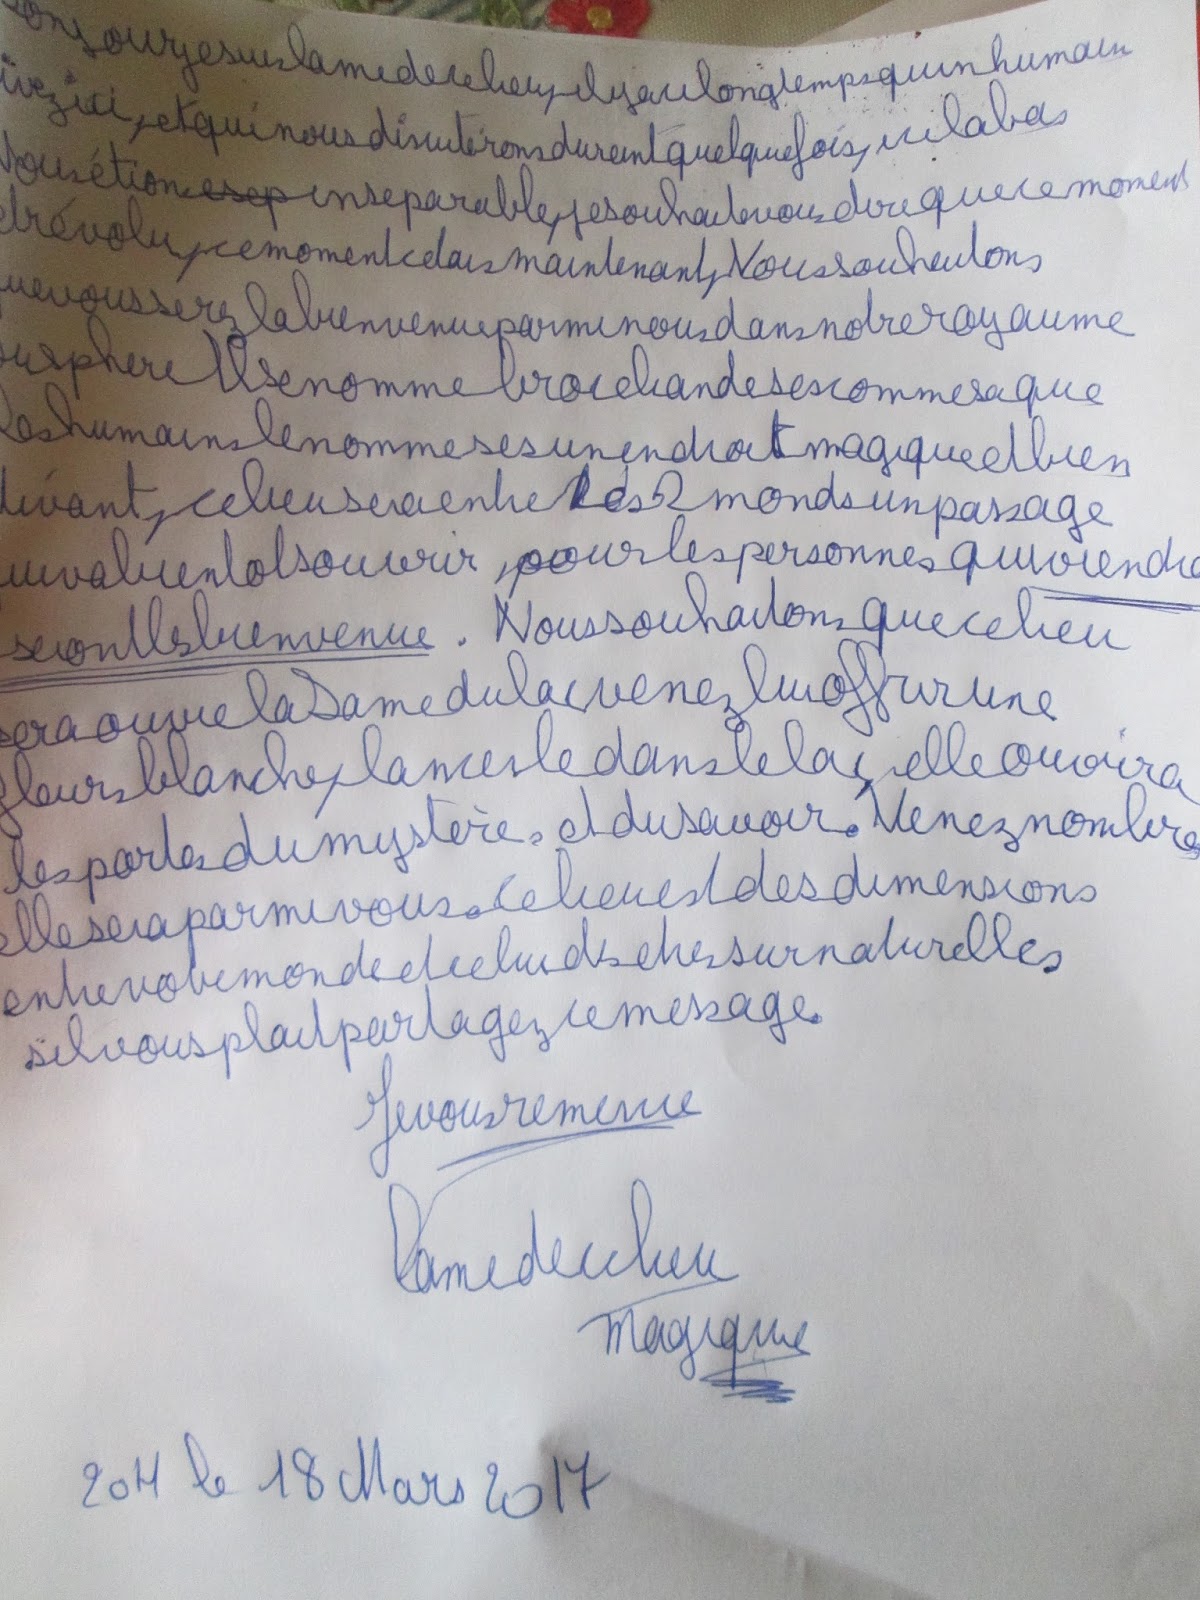 onjourjesuislamedecelieu, ilyaeulongtempsquunhumain
ivezici, etquinousdiscutéronsdurentquelquefois, icilabas
Nousétions inséparable, jesouhaitevousdirequecemoment
etrévolu, cemomentcdais maintenant, Noussouhaitons
uevousserezlabienvenueparminousdansnotreroyaume
ousphere Ilsenommebroceliandesescommesaque
leshumainslenommesesunendroitmagiqueetbien
vivant, celieuseraentre les 2 mondsunpassage
uivabientotsouvrir, pourlespersonnesquiviendra
serontlesbienvenue. Noussouhaitonsquecelieu
seraouvrelaDamedulac, venezluioffrirune
fleursblanche, lancesledanslelac, elleouvrira
lesportesdumystère. etdusavoir. Veneznombres
elleseraparmivous. celieuestdesdimensions
entrevotremondeetceluidsetressurnaturelles
silvousplaitpartagezcemessage.
Jevousremercie
lamedecelieu
magique
20H le 18 Mars 2017